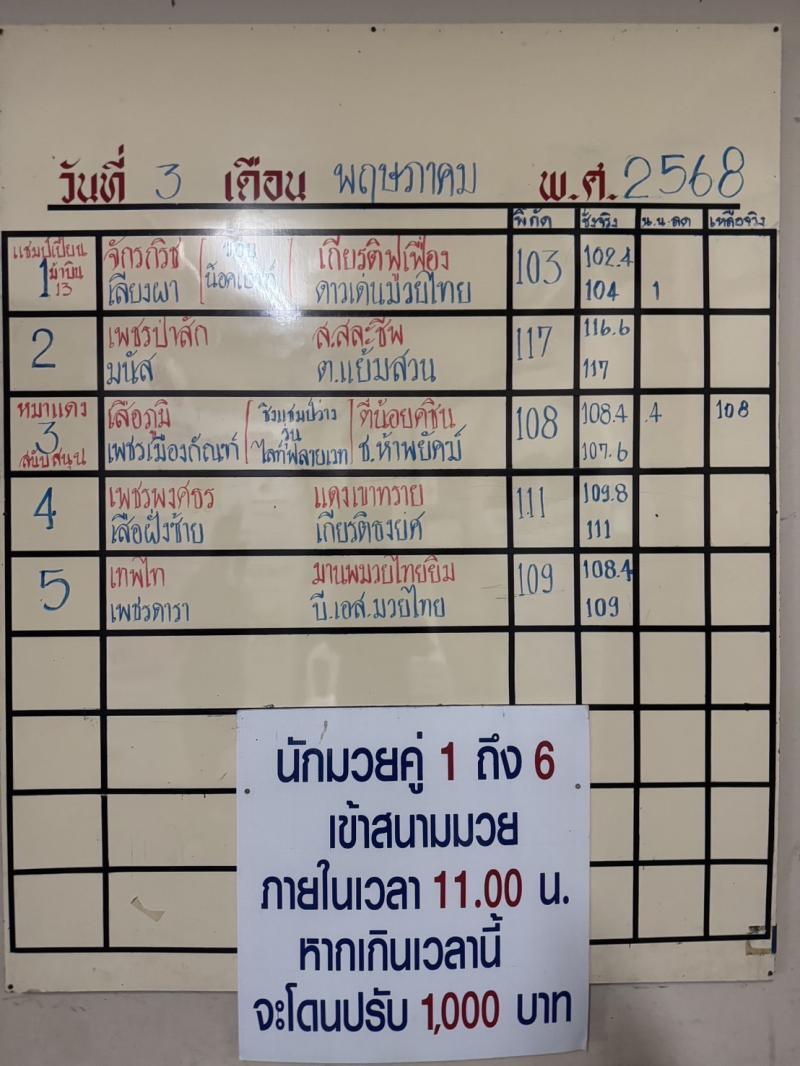 วันที่ 3 เดือน พฤษภาคม พ.ศ. 2568
พิกัด ชั่งจริง น.น.ลด เหลือจริง
แชมป์เปี้ยน จักรกวิช เกียรติฟูเฟื่อง 103 102.4
1 ม้าบิน 13 เลียงผา น็อคเอาท์ ดาวเด่นมวยไทย 104 1
2 เพชรป่าสัก ส.สละชีพ 117 116.6
มนัส ต.แย้มสวน 117
หมาแดง เสือภูมิ ชิงแชมป์ว่าง ตี๋น้อยคชิน 108 108.4 .4 108
3 รุ่น
สนับสนุน เพชรเมืองกัณฑ์ ไลท์ฟลายเวท ช.ห้าพยัคฆ์ 107.6
4 เพชรพงศธร แดงเขาทราย 111 109.8
เสือฝั่งซ้าย เกียรติธงยศ 111
5 เทพไท มานพมวยไทยยิม 109 108.4
เพชรดารา บี.เอส.มวยไทย 109
นักมวยคู่ 1 ถึง 6
เข้าสนามมวย
ภายในเวลา 11.00 น.
หากเกินเวลานี้
จะโดนปรับ 1,000 บาท